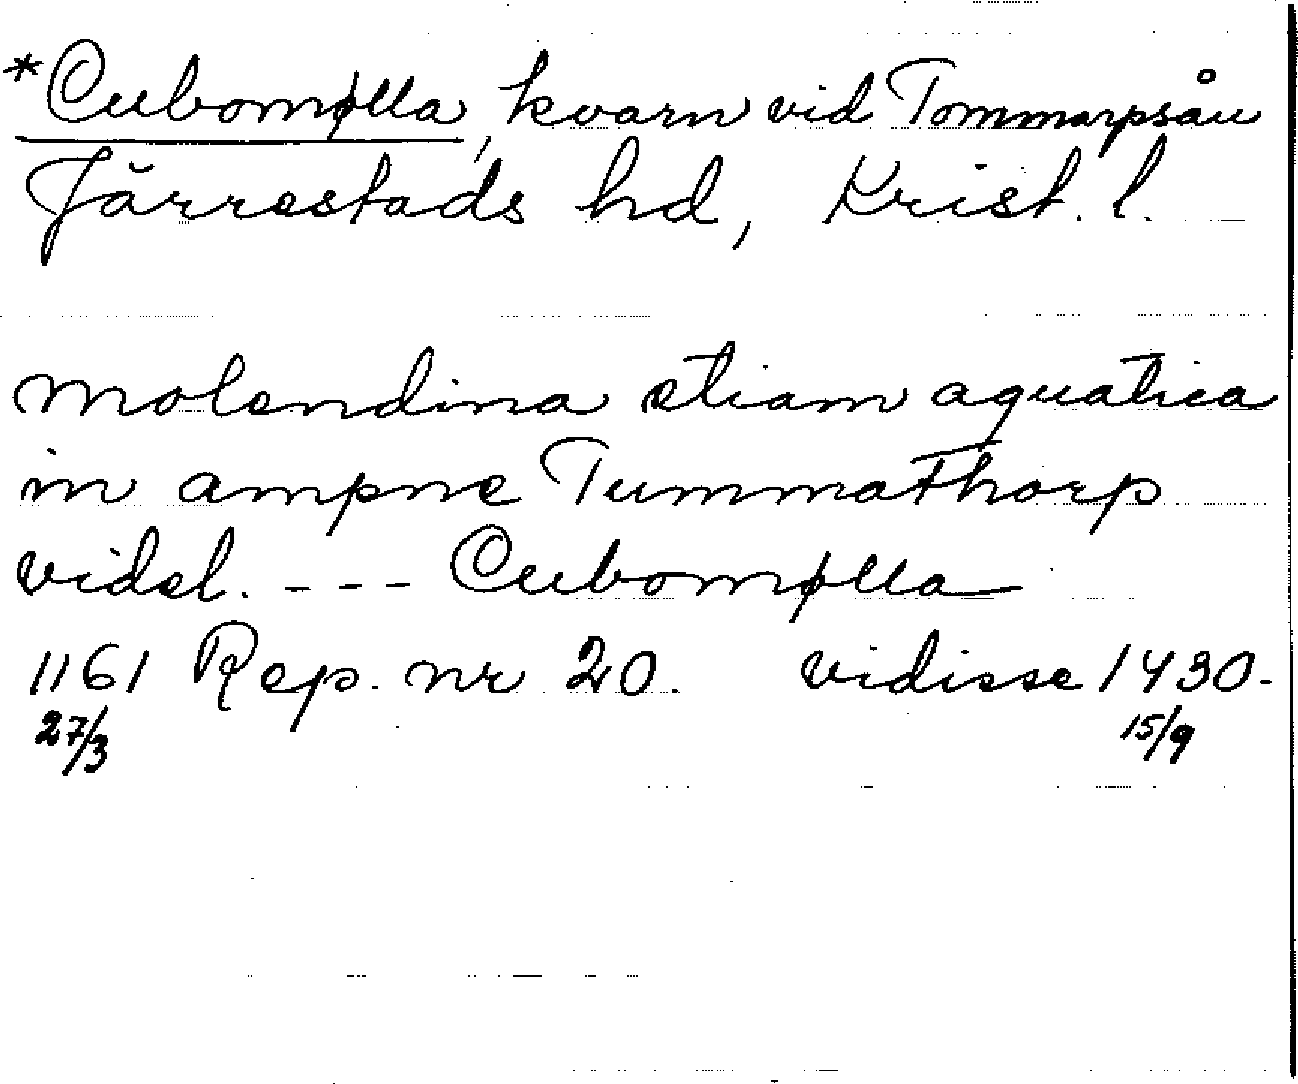 *Cubomølla, kvarn vid Tommarpsån
Järrestads hd, Krist. l.
molendina etiam aquatica
in ampne Tummathorp
videl. --- Cubomølla
1161 Rep. nr 20. vidisse 1430.
27/3 15/9